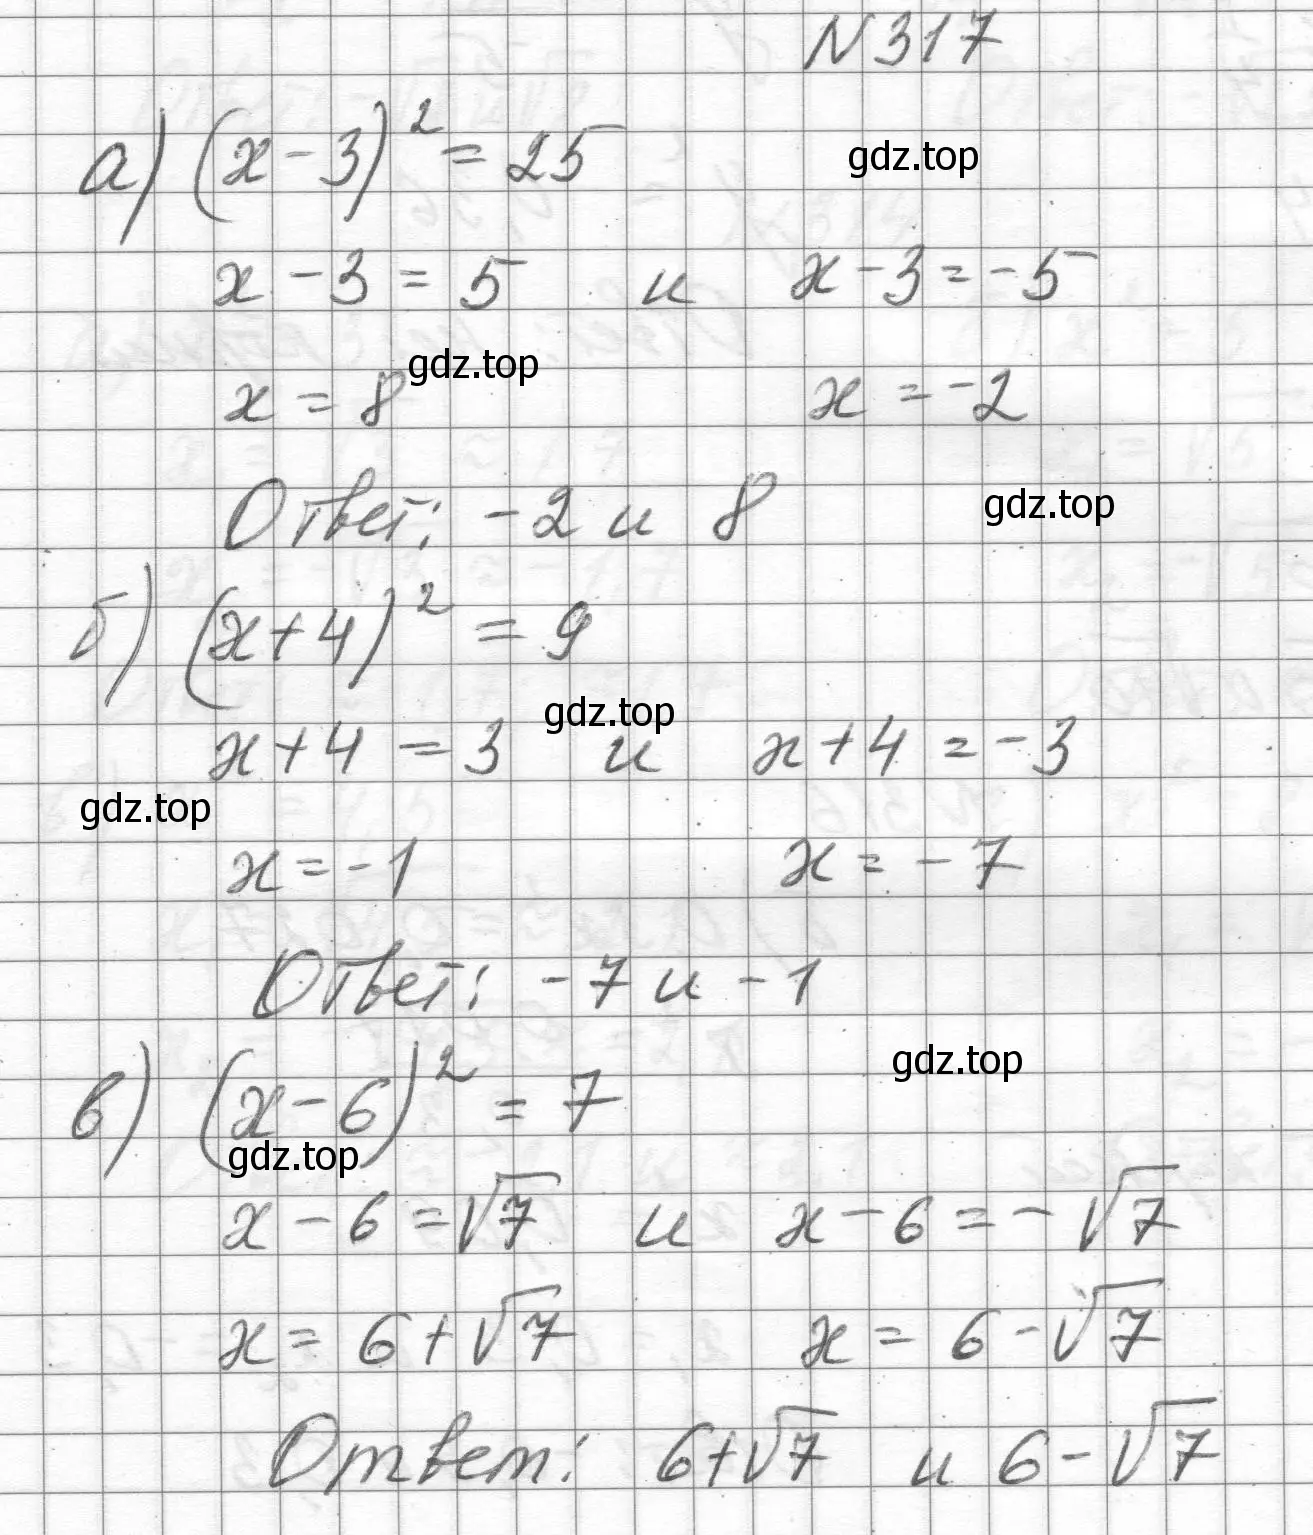 N317
а) (x-3)² = 25
gdz.top
x - 3 = 5 и x - 3 = -5
gdz.top
x = 8 x = -2
Ответ: -2 и 8
gdz.top
б) (x+4)² = 9
gdz.top
x+4 = 3 и x+4 = -3
gdz.top
x = -1 x = -7
Ответ: -7 и -1
gdz.top
в) (x-6)² = 7
gdz.top
x - 6 = √7 и x - 6 = -√7
x = 6+√7 x = 6-√7
Ответ: 6+√7 и 6-√7